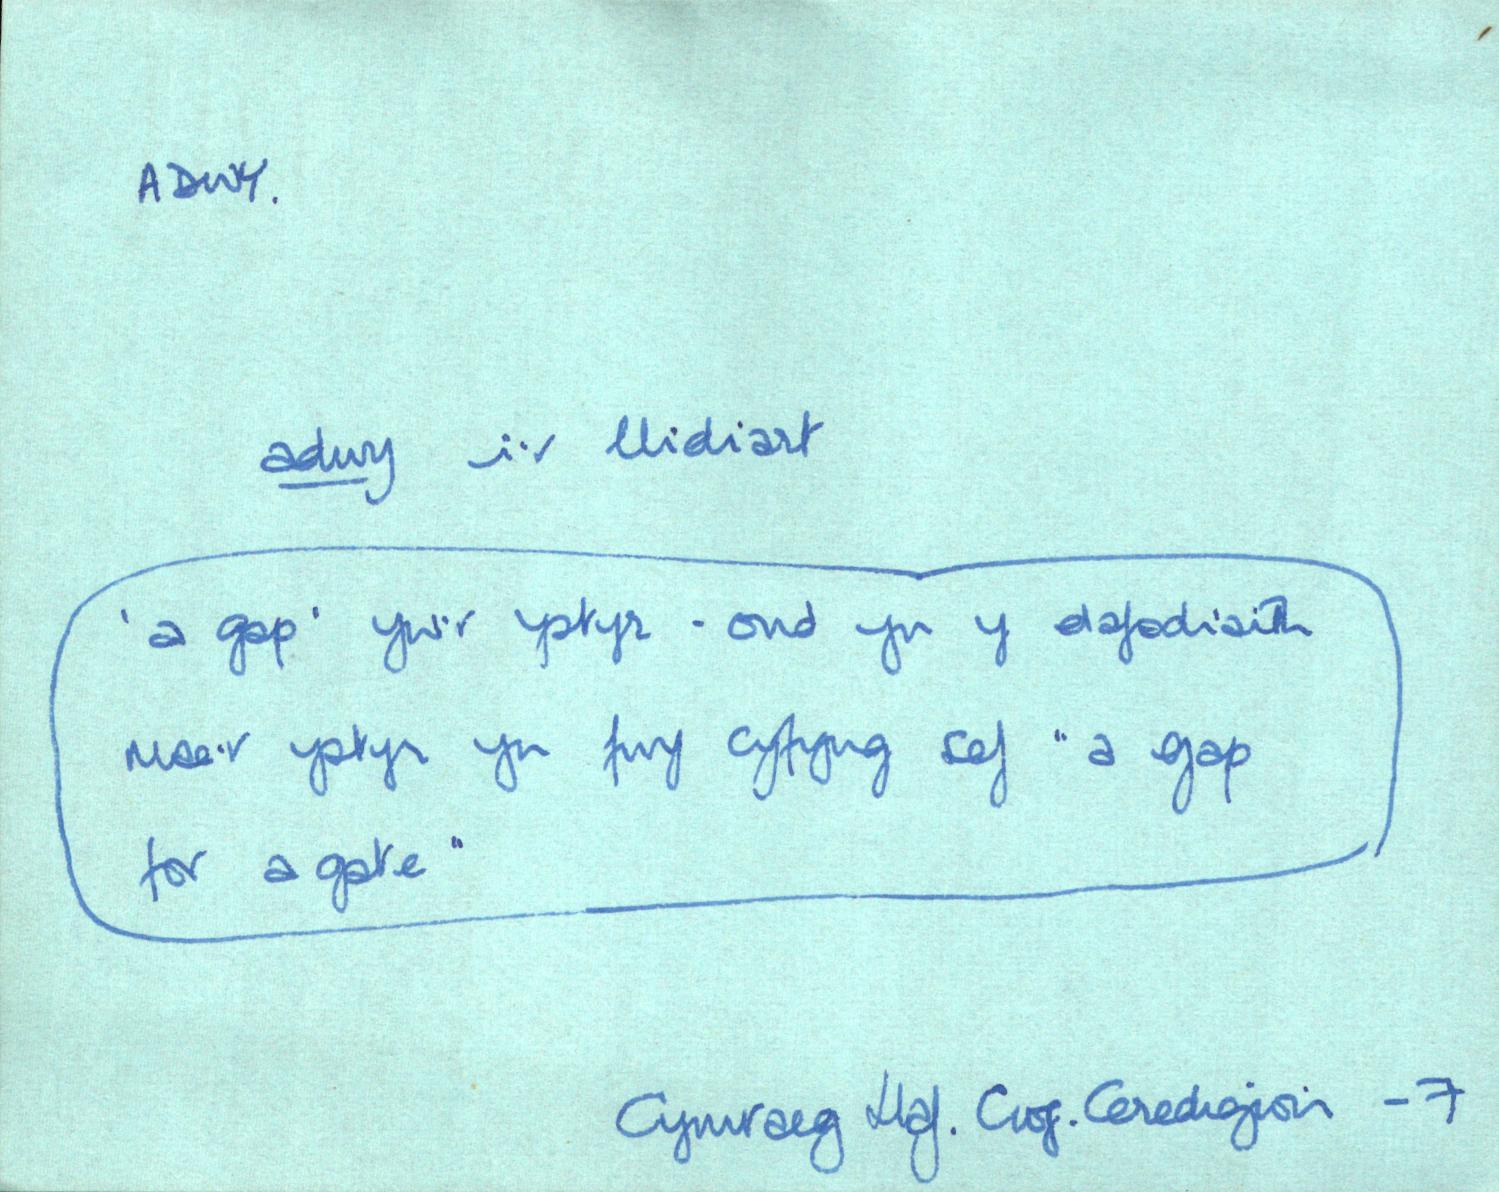 ADWY.
adwy i'r llidiart
'a gap' yw'r ystyr - ond yn y dafodiaith
mae'r ystyr yn fwy cyfyng sef "a gap
for a gate"
Cymraeg Llaf. Ceredigion - 7